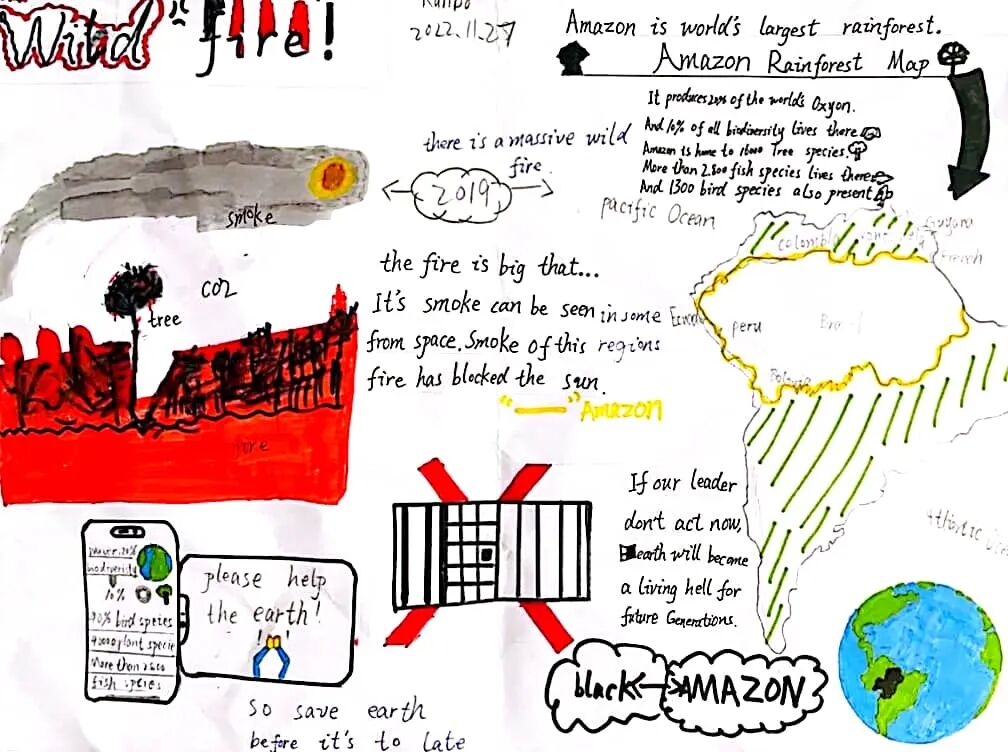 Wild fire!
2022.11.27
Amazon is world's largest rainforest.
Amazon Rainforest Map
It produces 20% of the world's Oxyon.
And 10% of all biodiversity lives there
Amazon is home to 16000 Tree species.
More than 2800 fish species lives there
And 1300 bird species also present
there is a massive wild
fire.
2019
smoke
CO2
tree
fire
the fire is big that...
It's smoke can be seen in some
from space. Smoke of this regions
fire has blocked the sun.
"—" Amazon
pacific Ocean
Colombia
Guyana
French
peru
Brazil
Atlantic
If our leader
don't act now,
earth will become
a living hell for
future Generations.
biodiversity
10%
bird species
plant specie
More than 2800
fish species
please help
the earth!
! !
black
AMAZON
So save earth
before it's to late